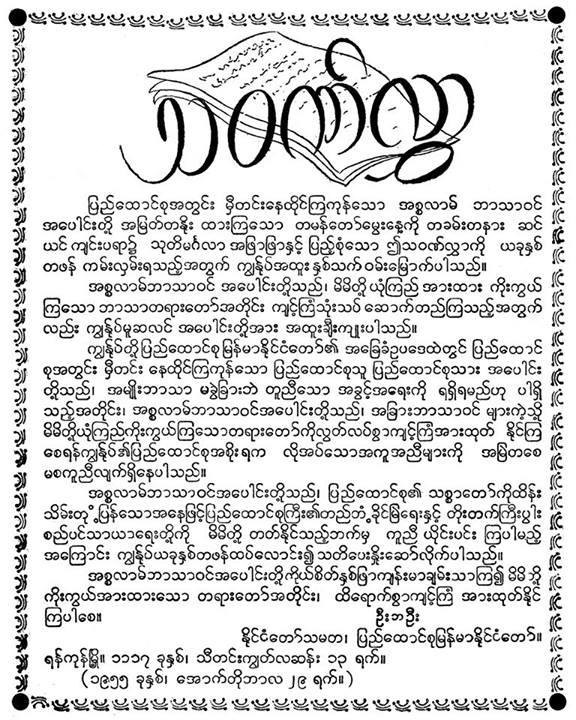 သဝဏ်လွှာ
ပြည်ထောင်စုအတွင်း မှီတင်းနေထိုင်ကြကုန်သော အစ္စလာမ် ဘာသာဝင်
အပေါင်းတို့ အမြတ်တနိုး ထားကြသော တမန်တော်မွေးနေ့ကို တခမ်းတနား ဆင်
ယင် ကျင်းပရာ၌ သုတိမင်္ဂလာ အဖြာဖြာနှင့် ပြည့်စုံသော ဤသဝဏ်လွှာကို ယခုနှစ်
တဖန် ကမ်းလှမ်းရသည့်အတွက် ကျွန်ုပ်အထူး နှစ်သက် ဝမ်းမြောက်ပါသည်။
အစ္စလာမ်ဘာသာဝင် အပေါင်းတို့သည်၊ မိမိတို့ ယုံကြည် အားထား ကိုးကွယ်
ကြသော ဘာသာတရားတော်အတိုင်း ကျင့်ကြံသုံးသပ် ဆောက်တည်ကြသည့်အတွက်
လည်း ကျွန်ုပ်မူဆလင် အပေါင်းတို့အား အထူးချီးကျူးပါသည်။
ကျွန်ုပ်တို့ ပြည်ထောင်စုမြန်မာနိုင်ငံတော်၏ အခြေခံဥပဒေထဲတွင် ပြည်ထောင်
စုအတွင်း မှီတင်း နေထိုင်ကြကုန်သော ပြည်ထောင်စုသူ ပြည်ထောင်စုသား အပေါင်း
တို့သည်၊ အမျိုးဘာသာ မခွဲခြားဘဲ တူညီသော အခွင့်အရေးကို ရရှိရမည်ဟု ပါရှိ
သည့်အတိုင်း၊ အစ္စလာမ်ဘာသာဝင်အပေါင်းတို့သည်၊ အခြားဘာသာဝင် များကဲ့သို့
မိမိတို့ယုံကြည်ကိုးကွယ်ကြသောတရားတော်ကိုလွတ်လပ်စွာကျင့်ကြံအားထုတ် နိုင်ကြ
စေရန်ကျွန်ုပ်၏ပြည်ထောင်စုအစိုးရက လိုအပ်သောအကူအညီများကို အမြဲတစေ
မစကူညီလျက်ရှိနေပါသည်။
အစ္စလာမ်ဘာသာဝင်အပေါင်းတို့သည်၊ ပြည်ထောင်စု၏ သစ္စာတော်ကိုထိန်း
သိမ်းတုံ့ပြန်သောအနေဖြင့်ပြည်ထောင်စုကြီး၏တည်တံ့ခိုင်မြဲရေးနှင့် တိုးတက်ကြီးပွါး
စည်ပင်သာယာရေးတို့ကို မိမိတို့ တတ်နိုင်သည့်ဘက်မှ ကူညီ ယိုင်းပင်း ကြပါမည့်
အကြောင်း ကျွန်ုပ်ယခုနှစ်တဖန်ထပ်လောင်း၍ သတိပေးနှိုးဆော်လိုက်ပါသည်။
အစ္စလာမ်ဘာသာဝင်အပေါင်းတို့ကိုယ်စိတ်နှစ်ဖြာကျန်းမာချမ်းသာကြ၍ မိမိ တို့
ကိုးကွယ်အားထားသော တရားတော်အတိုင်း၊ ထိရောက်စွာကျင့်ကြံ အားထုတ်နိုင်
ကြပါစေ။
ဦးဘဦး
နိုင်ငံတော်သမတ၊ ပြည်ထောင်စုမြန်မာနိုင်ငံတော်။
ရန်ကုန်မြို့။ ၁၁၁၇ ခုနှစ်၊ သီတင်းကျွတ်လဆန်း ၁၃ ရက်။
(၁၉၅၅ ခုနှစ်၊ အောက်တိုဘာလ ၂၉ ရက်။)